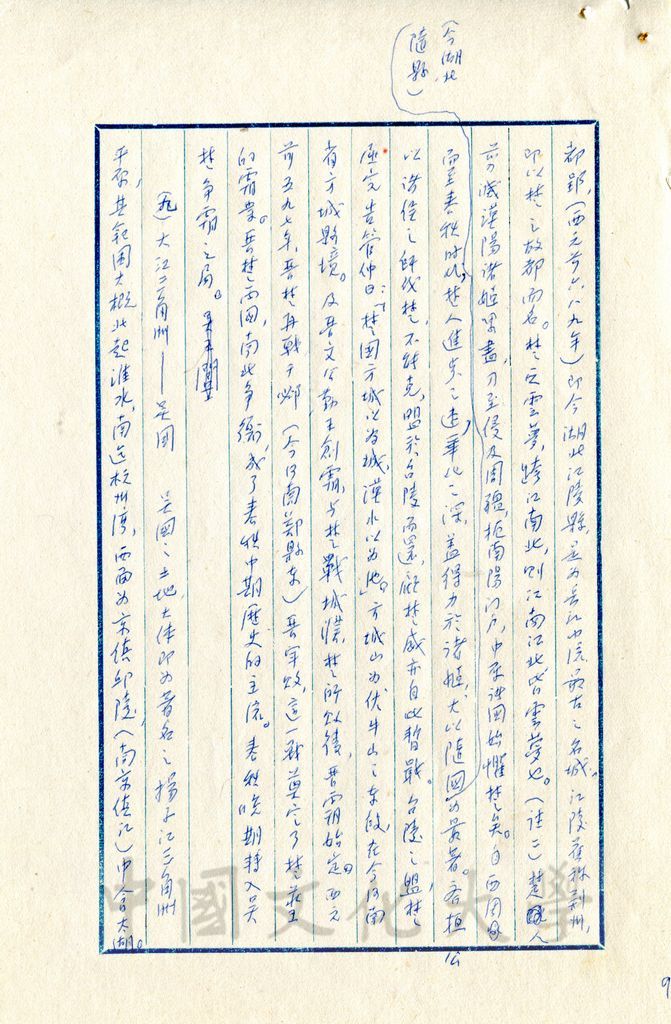 都郢，(西元前六八九年)即今湖北江陵縣，是為長江中流最古之名城。江陵舊稱荆州，
即以楚之故都而名。楚之雲夢，跨江南北，則江南江北皆雲夢也。(註二)楚人
前滅漢陽諸姬略盡，乃至侵及周疆，扼南陽門戶，中原諸國始懼楚矣。自西周
而至春秋時代，楚人進步之速，華化之深，蓋得力於諸姬，尤以隨國為最著。齊桓公
(今湖北
隨縣)
以諸侯之師伐楚，不能克，盟於召陵而還，雖楚威亦自此暫戢。召陵之盟，楚
屈完告管仲曰：「楚國方城以為城，漢水以為池」，方城山為伏牛山之東段，在今河南
省方城縣境。及晉文公勤王創霸，與楚戰城濮，楚師敗後，晉霸始定。西元
前五九七年，晉楚再戰于邲(今河南鄭縣東)晉軍敗，這一戰奠定了楚莊王
的霸業。晉楚兩國，南北爭衡，成了春秋中期歷史的主流。春秋晚期轉入吳
楚爭霸之局。
(九)大江三角洲——吳國 吳國之土地，大体即為著名之揚子江三角洲
平原，其範圍大概北起淮水，南迄杭州灣，西面為京鎮邱陵(南京鎮江)中含太湖。
中國文化大學
9